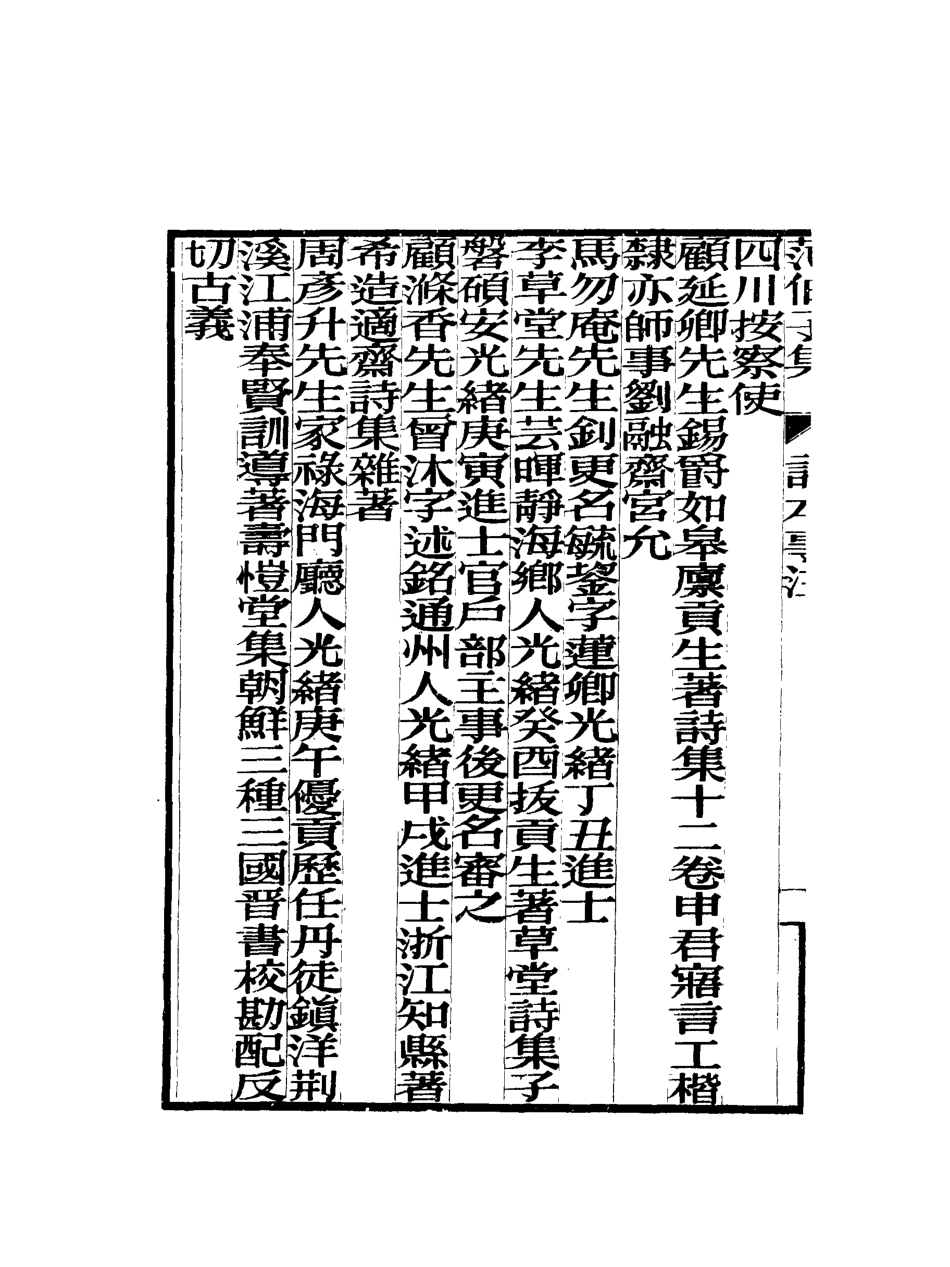 四川按察使
顧延卿先生錫爵如皋廪貢生著詩集十二卷申君寤言工楷
隸亦師事劉融齋宮允
馬勿庵先生釗更名毓鋆字蓮卿光緒丁丑進士
李草堂先生芸暉靜海鄉人光緒癸酉拔貢生著草堂詩集子
磐碩安光緒庚寅進士官戶部主事後更名審之
顧滌香先生曾沐字述銘通州人光緒甲戌進士浙江知縣著
希造適齋詩集雜著
周彥升先生家祿海門廳人光緒庚午優貢歷任丹徒鎮洋荆
溪江浦奉賢訓導著壽愷堂集朝鮮三種三國晋書校勘配反
切古義